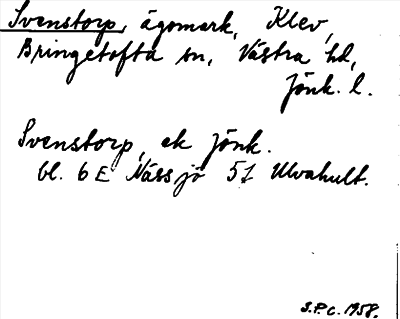 Svenstorp, ägomark, Klev,
Bringetofta sn, Västra hd,
Jönk. l.
Svenstorp, ek Jönk.
bl. 6 E Nässjö 5f Ulvahult.
S.P.C. 1958.